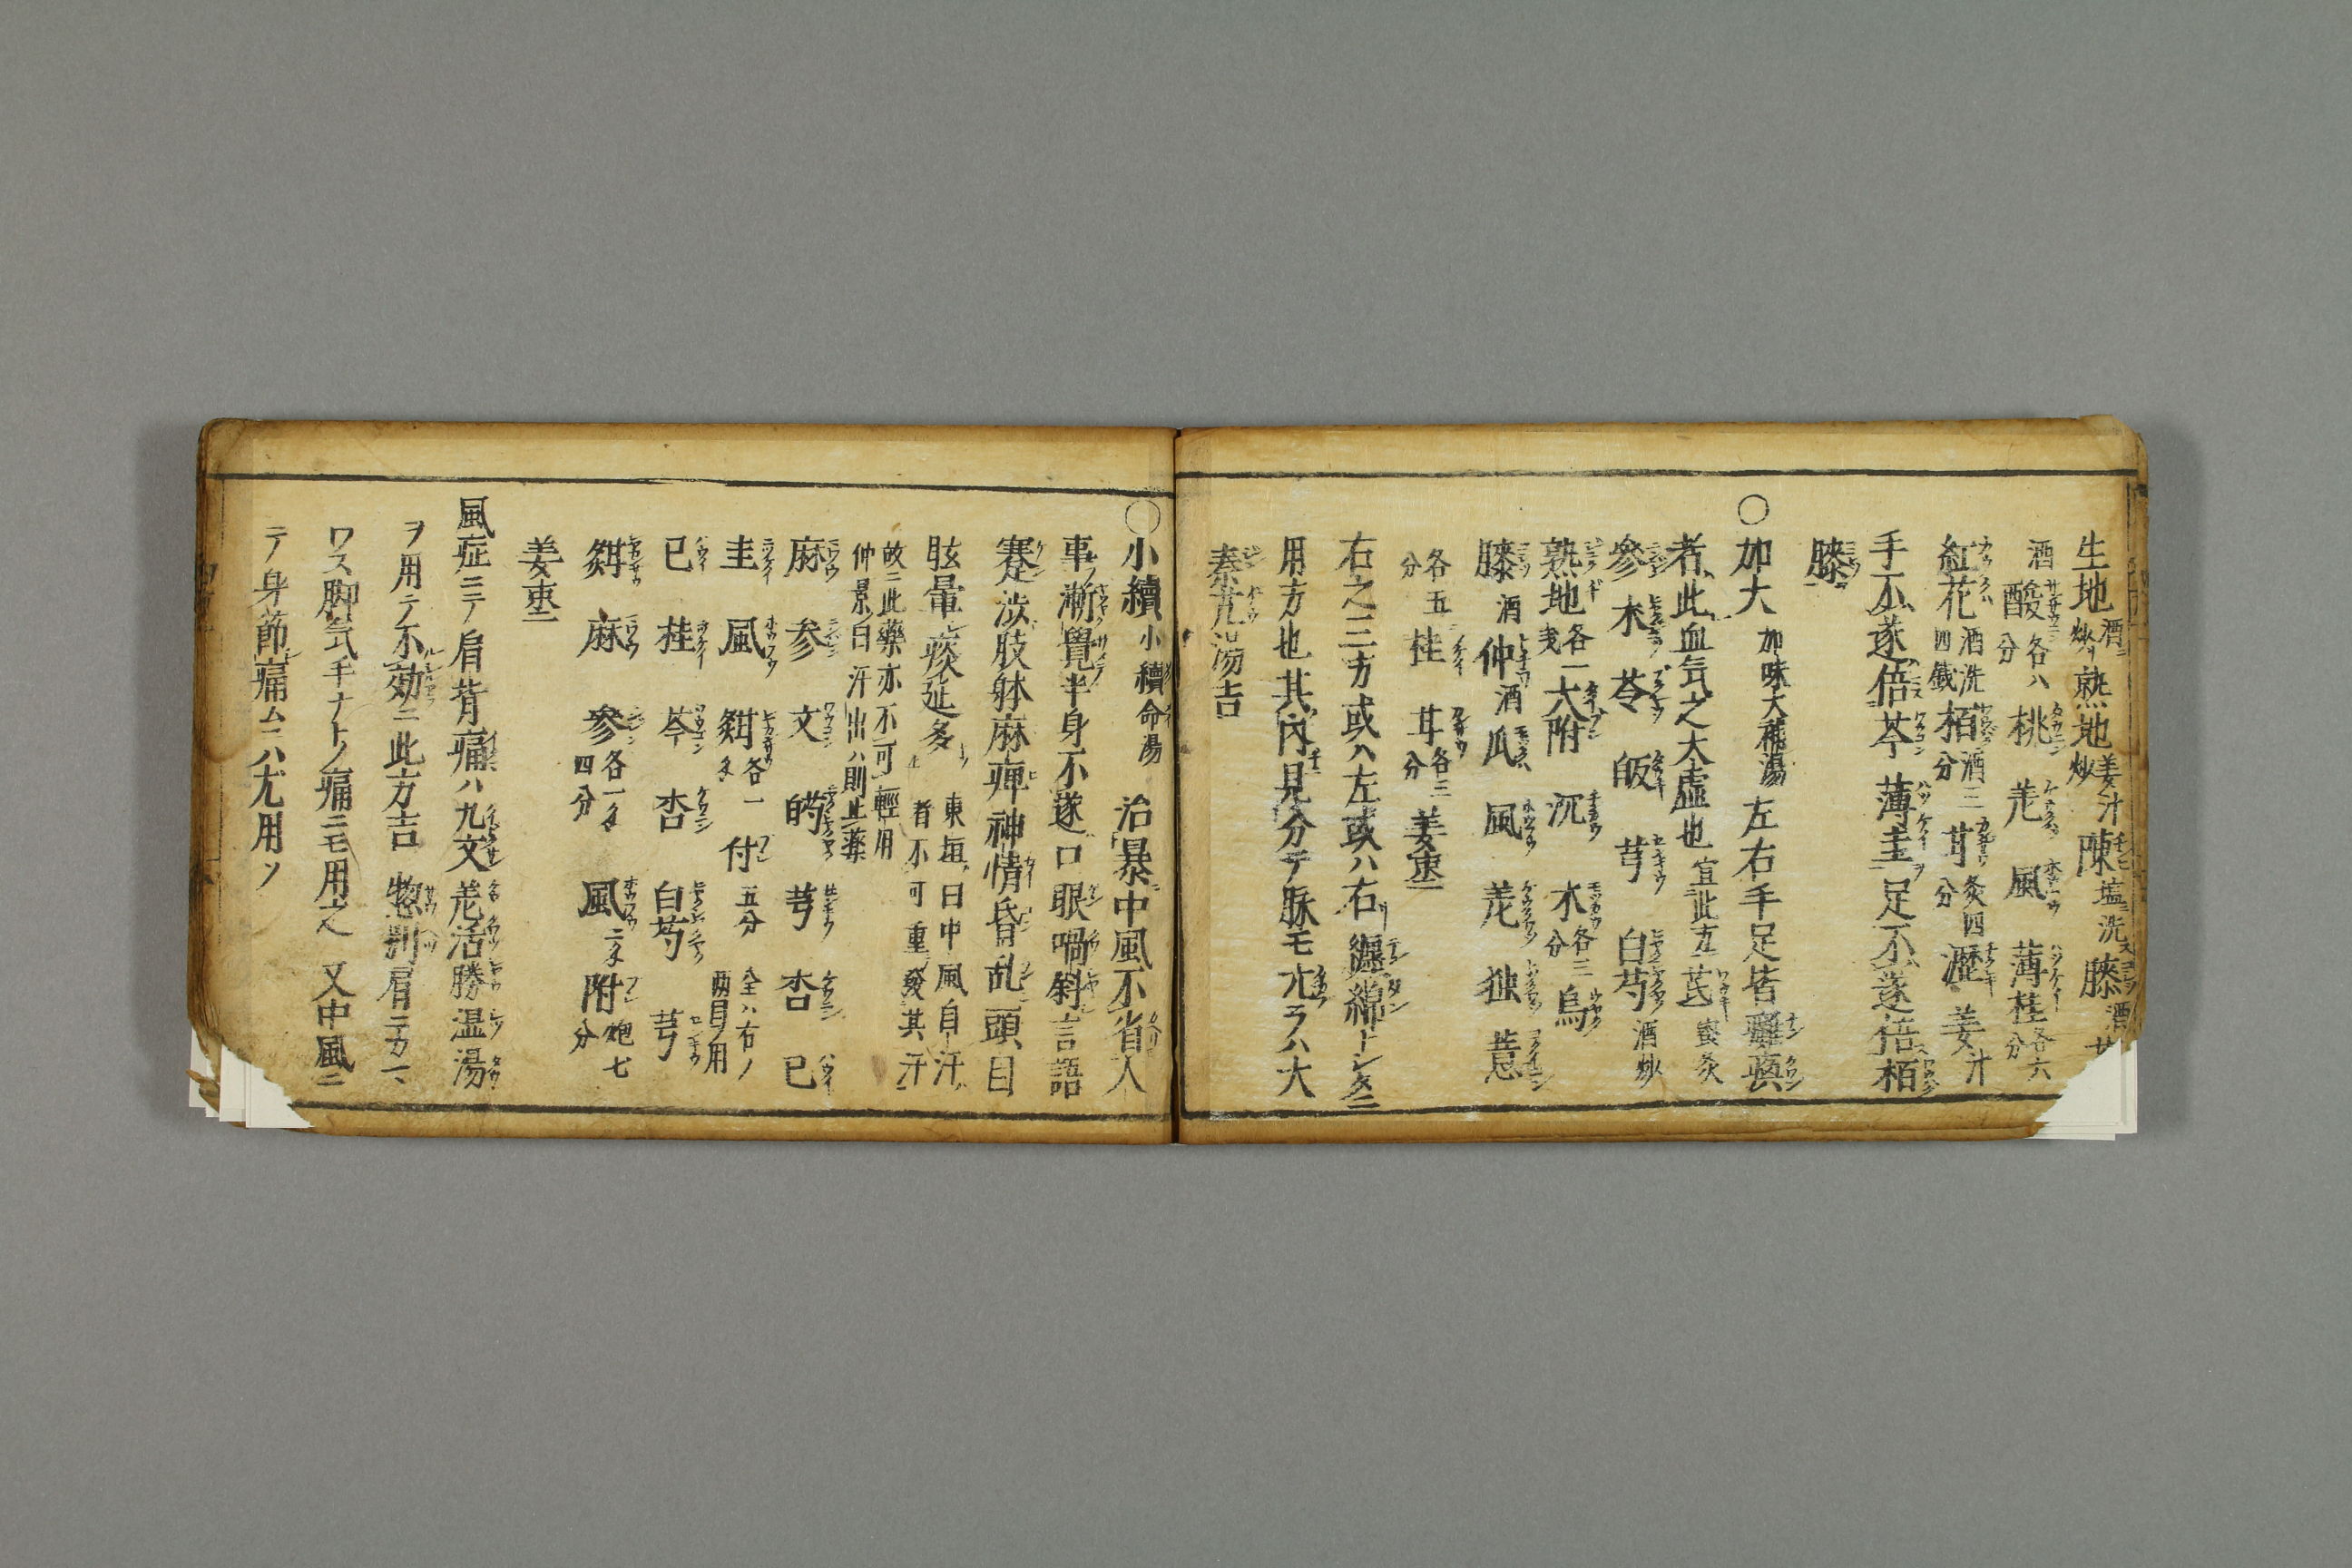 生地酒炒熟地姜汁炒陳塩洗膝酒
酒酸各八分桃羌風薄桂各六分
紅花酒洗四戔栢酒三分甘灸四分瀝姜汁
手不遂倍芩薄圭足不遂倍栢
膝
〇加大加味大補湯左右手足皆癱瘓
者此血気之大虚也宜此方芪蜜灸
參朮苓皈芎白芍酒炒
熟地各一戔大附沉木各三分烏
膝酒仲酒瓜風羌独薏
各五分桂甘各三分姜棗
右之三方或ハ左或ハ右纏綿トシタニ
用方也其内見分テ脉モ尢ヲハ大
秦艽湯吉
〇小續小續命湯治暴中風不省人
事漸覺半身不遂口眼喎斜言語
蹇渋肢体麻痺神情昏乱頭目
眩暈痰延多東垣曰中風自汗者不可重發其汗
故ニ此藥亦不可輕用仲景曰汗出ハ則止藥
麻参文芍芎杏已
圭風甜各一匁付五分全ハ右ノ兩目ノ用
已桂芩杏白芍芎
甜麻參各一匁四分風二匁附炮七分
姜棗
風症ミテ肩背痛ハ九文羌活勝温湯
ヲ用テ不効ニ此方吉惣別肩ニカヽ
ワス脚気手ナトノ痛ニモ用之又中風ニ
テ身節痛ムニハ尤用ソ